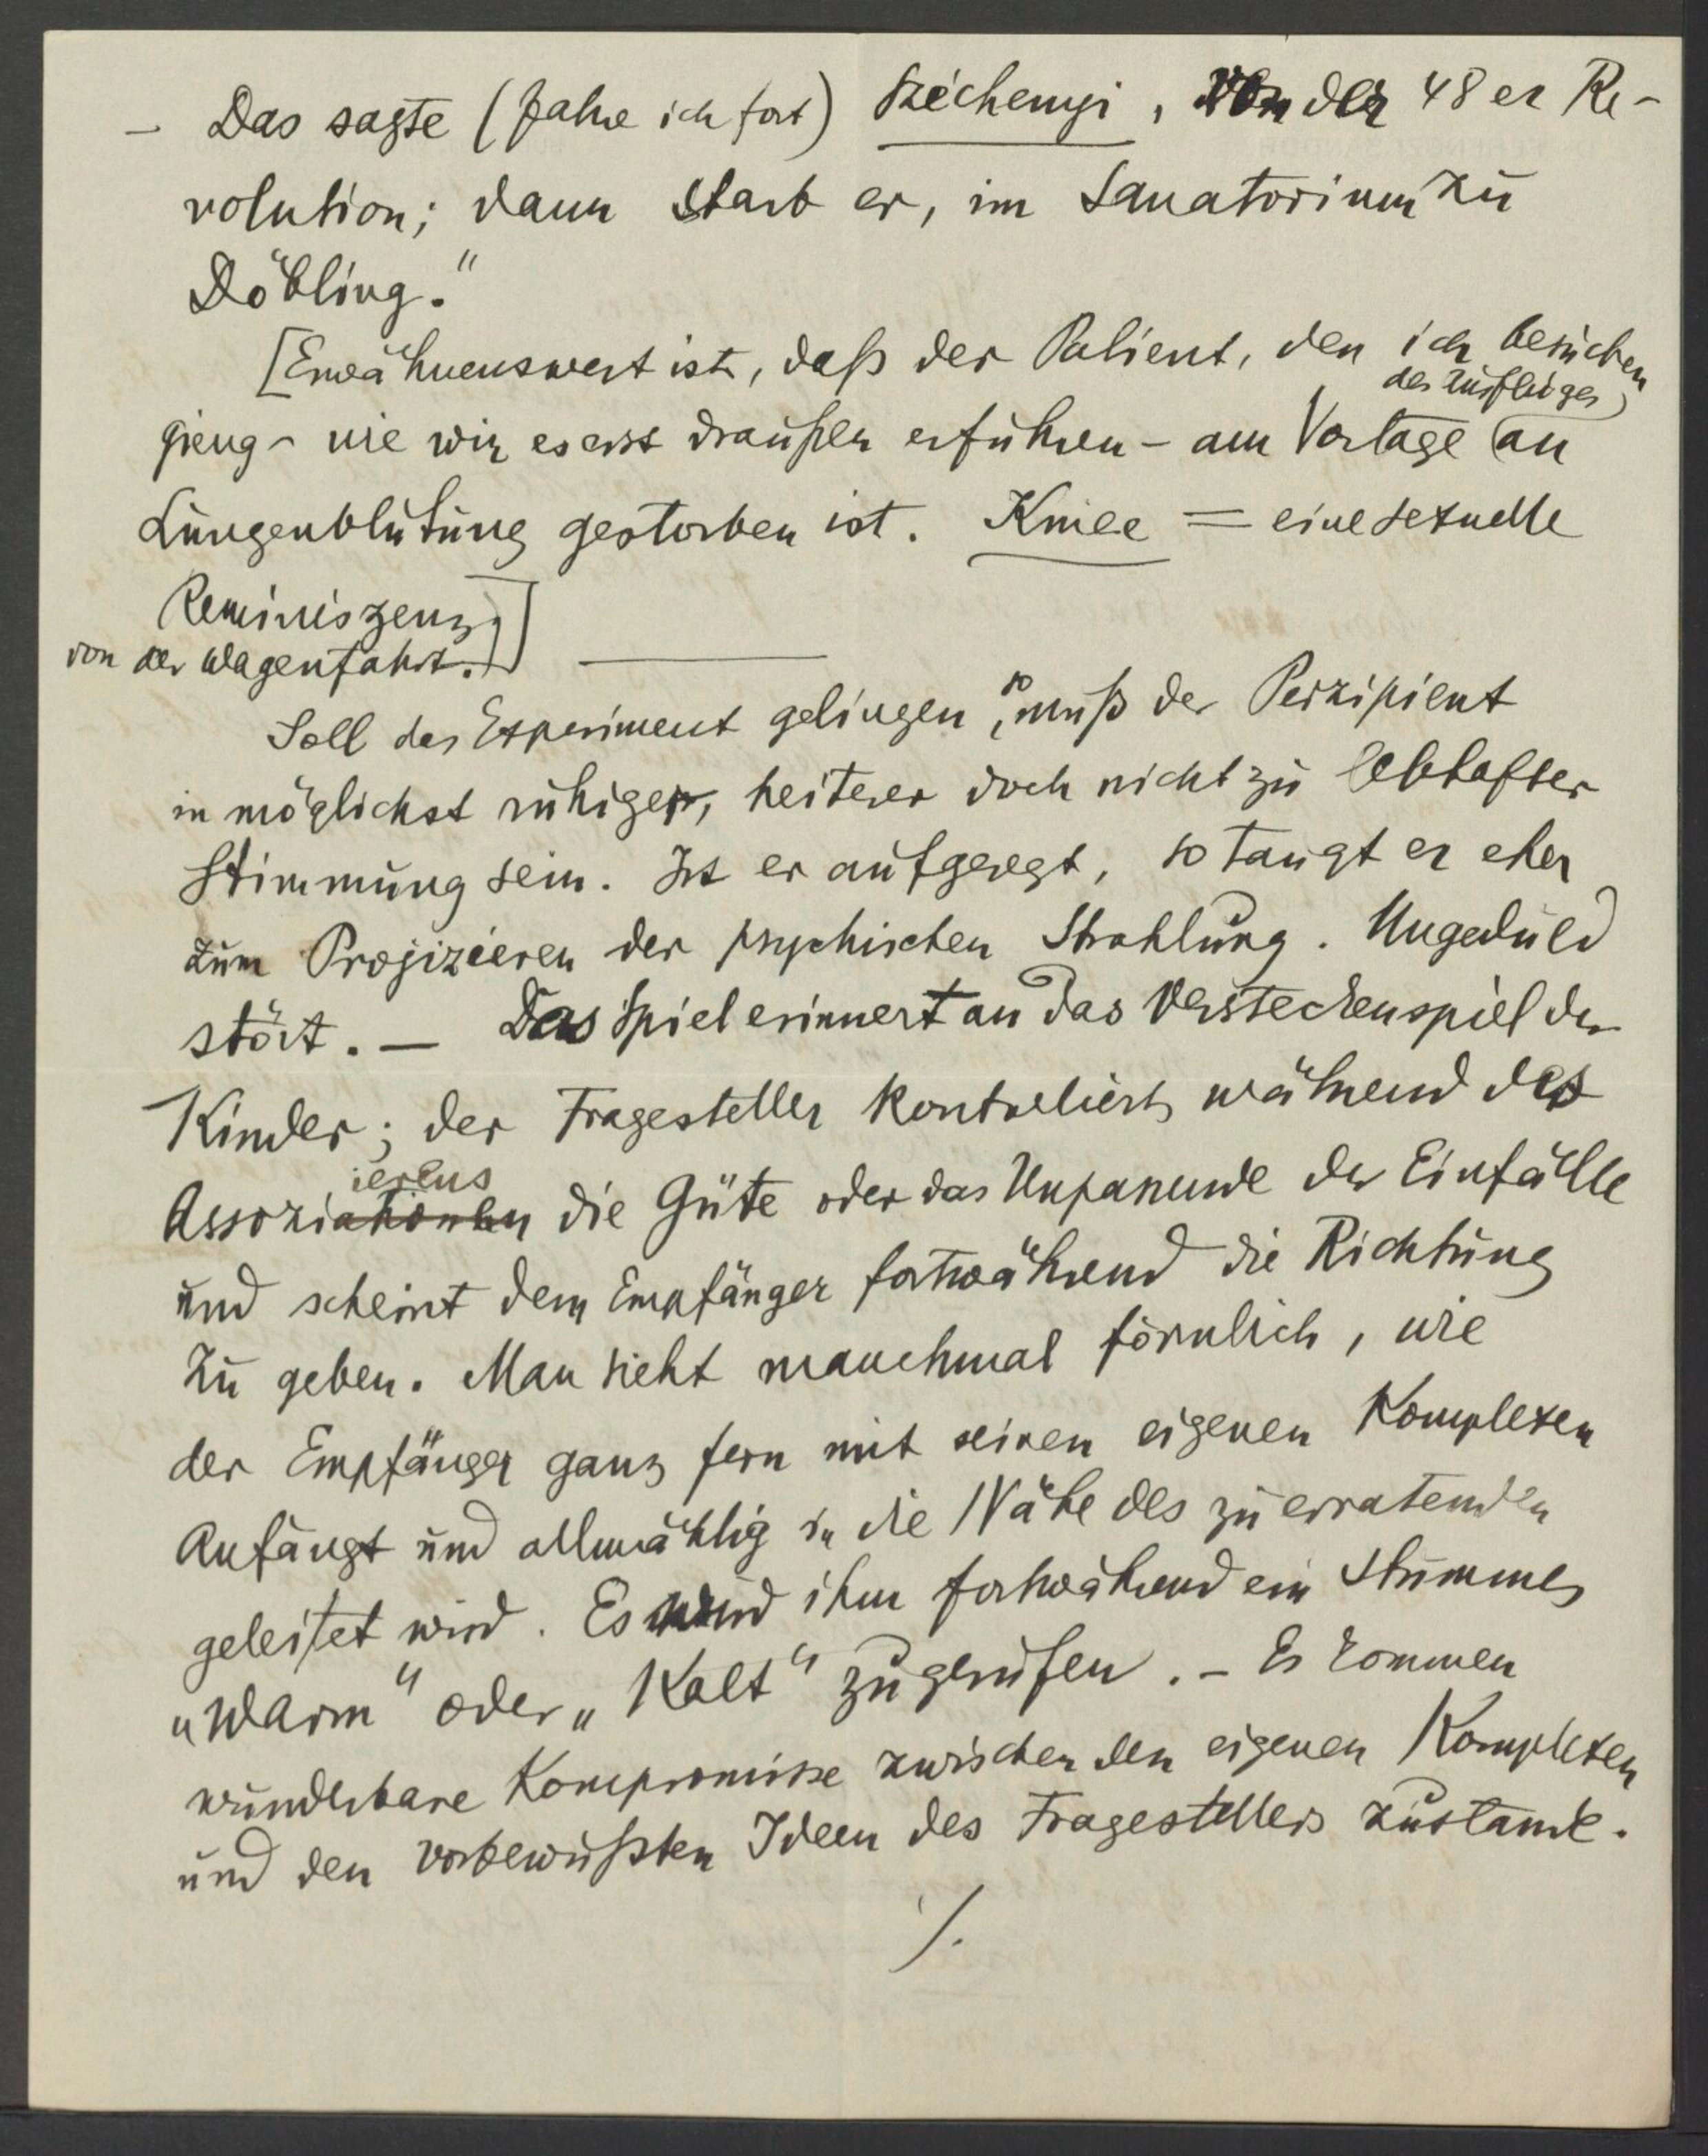 – Das sagte (fahre ich fort) Széchenyi, von der 48er Re-
volution; dann starb er, im Sanatorium zu
Döbling."
[Erwähnenswert ist, daß der Patient, den ich besuchen
des Ausfluges
gieng – wie wir es erst draußen erfuhren – am Vortage an
Lungenblutung gestorben ist. Kniee = eine sexuelle
Reminiszenz
von der Wagenfahrt.]
Soll das Experiment gelingen, so muß der Perzipient
in möglichst ruhiger, heiterer doch nicht zu lebhafter
Stimmung sein. Ist er aufgeregt, so taugt er eher
zum Projizieren der psychischen Strahlung. Ungeduld
stört. – Das Spiel erinnert an das Versteckenspiel der
Kinder; der Fragesteller kontrolliert während des
ierens
Assoziationen die Güte oder das Unpassende der Einfälle
und scheint dem Empfänger fortwährend die Richtung
zu geben. Man sieht manchmal förmlich, wie
der Empfänger ganz fern mit seinen eigenen Komplexen
Anfängt und allmählig in die Nähe des zu erratenden
geleitet wird. Es wird ihm fortwährend ein stummes
„Warm" oder „Kalt" zugerufen. – Es kommen
wunderbare Kompromisse zwischen den eigenen Komplexen
und den vorbewußten Ideen des Fragestellers zustande.
/.